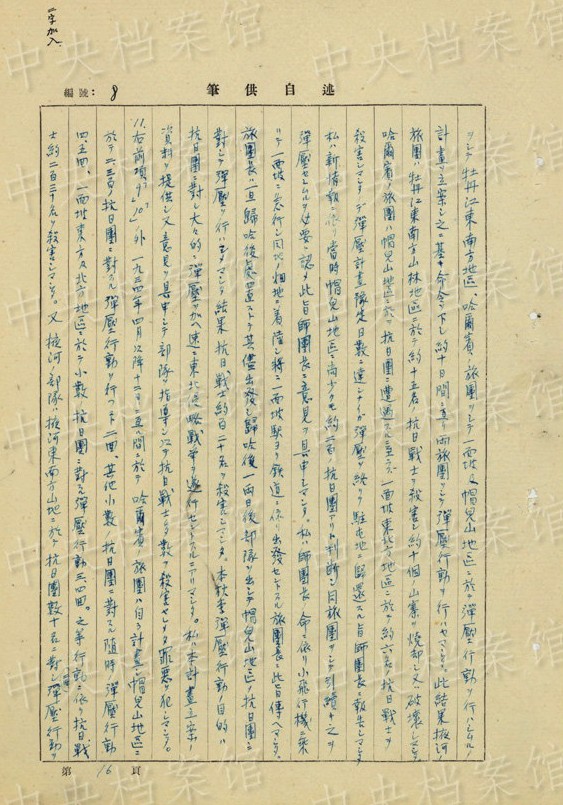 一字加入
中央档案馆
編號:8
筆供自述
シテ牡丹江東南方地区、哈爾賓ノ旅団ヲシテ一面坡及帽児山地区ニ於テ弾壓行動ヲ行ハシムル
計畫ヲ立案シ之ニ基キ命令ヲ下シ約十日間ニ亘リ両旅団ヲシテ弾壓行動ヲ行ハセマシタ。此結果掖河
旅団ハ牡丹江東南方山林地区ニ於テ約十五名ノ抗日戦士ヲ殺害シ約十個ノ山寨ヲ焼却シ又ハ破壊シマシタ
哈爾賓ノ旅団ハ帽児山地区ニ於テハ抗日団ニ遭遇スルニ至ラズ一面坡東北方地区ニ於テ約六名ノ抗日戦士ヲ
殺害シマシタ。デ弾壓計畫豫定日数ニ達シ
弾壓ヲ終リ駐屯地ニ歸還スル旨師團長ニ報告シマシタ
私ハ新情報ニ依リ當時帽児山地区ニ尚少クモ約二百ノ抗日団アリト判断シ同旅団ヲシテ引續キ之ヲ
弾壓セシムルヲ必要ト認メ此旨師團長ニ意見ヲ具申シマシタ。私ハ師團長ノ命ニ依リ小飛行機ニ乗
リテ一面坡ニ急行シ同地ノ畑地ニ着陸シ将ニ一面坡駅ヨリ鉄道ニ依リ出發セントスル旅團長ニ此旨傳ヘマシタ。
旅團長ハ一旦歸哈後處置スルトテ其儘出發シ歸哈後一両日後部隊ヲ出シテ帽児山地区ノ抗日團ニ
對シ弾壓ヲ行ハシメマシタ結果抗日戦士約二十名ヲ殺害シマシタ。本秋季弾壓行動ノ目的ハ
抗日團ニ對シ大々的ニ弾壓ヲ加ヘ速ニ東北侵略戦争ヲ遂行セントスルニアリマシタ。私ハ本計畫立案ノ
資料ヲ提供シ又意見ヲ具申シテ部隊ヲ指導シ以テ抗日戦士多数ヲ殺害セシメタ罪悪ヲ犯シマシタ。
11.右前項9、10ノ外一九三四年四月以降十二月ニ亘ル間ニ於テ哈爾賓ノ旅團ハ自ラ計畫シ帽児山地区ニ
於テ二、三百ノ抗日團ニ對スル弾壓行動ヲ行フコト二回、其他小数ノ抗日團ニ對スル随時ノ弾壓行動
四、五回、一面坡東方及北方地区ニ於テ小数ノ抗日團ニ對スル弾壓行動三、四回。之等行動ニ依リ抗日戦
士約二百三十名ヲ殺害シマシタ。又掖河ノ部隊ハ掖河東南方山地ニ於テ抗日團数十名ニ對シ弾壓行動ヲ
第16頁